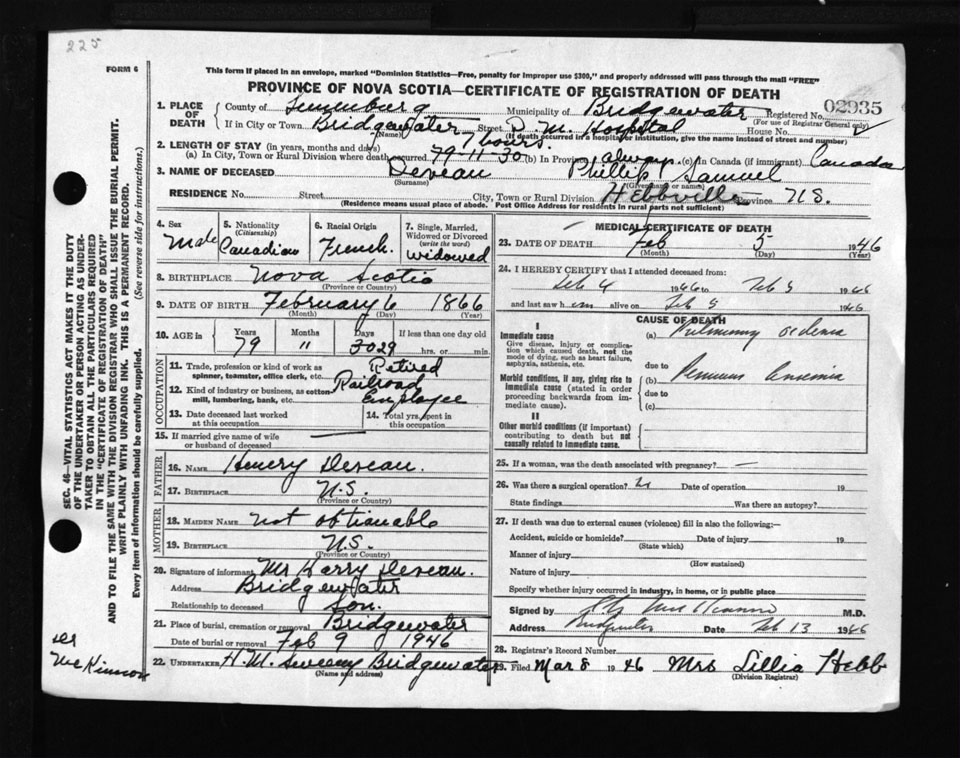 225
FORM 6
This form if placed in an envelope, marked "Dominion Statistics—Free, penalty for improper use $300," and properly addressed will pass through the mail "FREE"
PROVINCE OF NOVA SCOTIA—CERTIFICATE OF REGISTRATION OF DEATH
SEC. 46—VITAL STATISTICS ACT MAKES IT THE DUTY
OF THE UNDERTAKER OR PERSON ACTING AS UNDER-
TAKER TO OBTAIN ALL THE PARTICULARS REQUIRED
IN THE "CERTIFICATE OF REGISTRATION OF DEATH"
AND TO FILE THE SAME WITH THE DIVISION REGISTRAR WHO SHALL ISSUE THE BURIAL PERMIT.
WRITE PLAINLY WITH UNFADING INK. THIS IS A PERMANENT RECORD.
Every item of information should be carefully supplied. (See reverse side for instructions.)
1. PLACE OF DEATH
County of Lunenburg Municipality of Bridgewater Registered No. 02935
(For use of Registrar General only)
If in City or Town Bridgewater Street D. M. Hospital House No.
(Name) (If death occurred in hospital or institution, give the name instead of street and number)
2. LENGTH OF STAY (in years, months and days) 7 hours.
(a) In City, Town or Rural Division where death occurred 79-11-30 (b) In Province always (c) In Canada (if immigrant) Canada
3. NAME OF DECEASED Deveau Phillip Samuel
(Surname) (Given name or names)
RESIDENCE No. Street City, Town or Rural Division Hebbville Province N.S.
(Residence means usual place of abode. Post Office Address for residents in rural parts not sufficient)
4. Sex Male
5. Nationality (Citizenship) Canadian
6. Racial Origin French
7. Single, Married, Widowed or Divorced (write the word) Widowed
8. BIRTHPLACE Nova Scotia
(Province or Country)
9. DATE OF BIRTH February 6 1866
(Month) (Day) (Year)
10. AGE in Years Months Days If less than one day old
79 11 30 29 hrs. or min.
OCCUPATION
11. Trade, profession or kind of work as spinner, teamster, office clerk, etc. Retired
12. Kind of industry or business, as cotton mill, lumbering, bank, etc. Railroad Employee
13. Date deceased last worked at this occupation
14. Total yrs. spent in this occupation
15. If married give name of wife or husband of deceased —
FATHER
16. NAME Henery Deveau.
17. BIRTHPLACE N.S.
(Province or Country)
MOTHER
18. MAIDEN NAME not obtianable
19. BIRTHPLACE N.S.
(Province or Country)
20. Signature of informant Mr Harry Deveau.
Address Bridgewater
Relationship to deceased Son.
21. Place of burial, cremation or removal Bridgewater
Date of burial or removal Feb 9 1946
22. UNDERTAKER H. M. Sweeny Bridgewater
(Name and address)
McKinnon
MEDICAL CERTIFICATE OF DEATH
23. DATE OF DEATH Feb 5 1946
(Month) (Day) (Year)
24. I HEREBY CERTIFY that I attended deceased from:
Feb 4 1946 to Feb 5 1946
and last saw him alive on Feb 5 1946
CAUSE OF DEATH
I
Immediate cause
Give disease, injury or complication which caused death, not the mode of dying, such as heart failure, asphyxia, asthenia, etc.
(a) Pulmonary oedema
due to
Morbid conditions, if any, giving rise to immediate cause (stated in order proceeding backwards from immediate cause).
(b) Pernicious anaemia
due to
(c)
II
Other morbid conditions (if important) contributing to death but not causally related to immediate cause.
25. If a woman, was the death associated with pregnancy? —
26. Was there a surgical operation? Date of operation 19
State findings Was there an autopsy?
27. If death was due to external causes (violence) fill in also the following:—
Accident, suicide or homicide? Date of injury 19
(State which)
Manner of injury
(How sustained)
Nature of injury
Specify whether injury occurred in industry, in home, or in public place
Signed by M.D.
Address Bridgewater Date Feb 13 1946
28. Registrar's Record Number
29. Filed Mar 8 1946 Mrs Lillia Hebb
(Division Registrar)